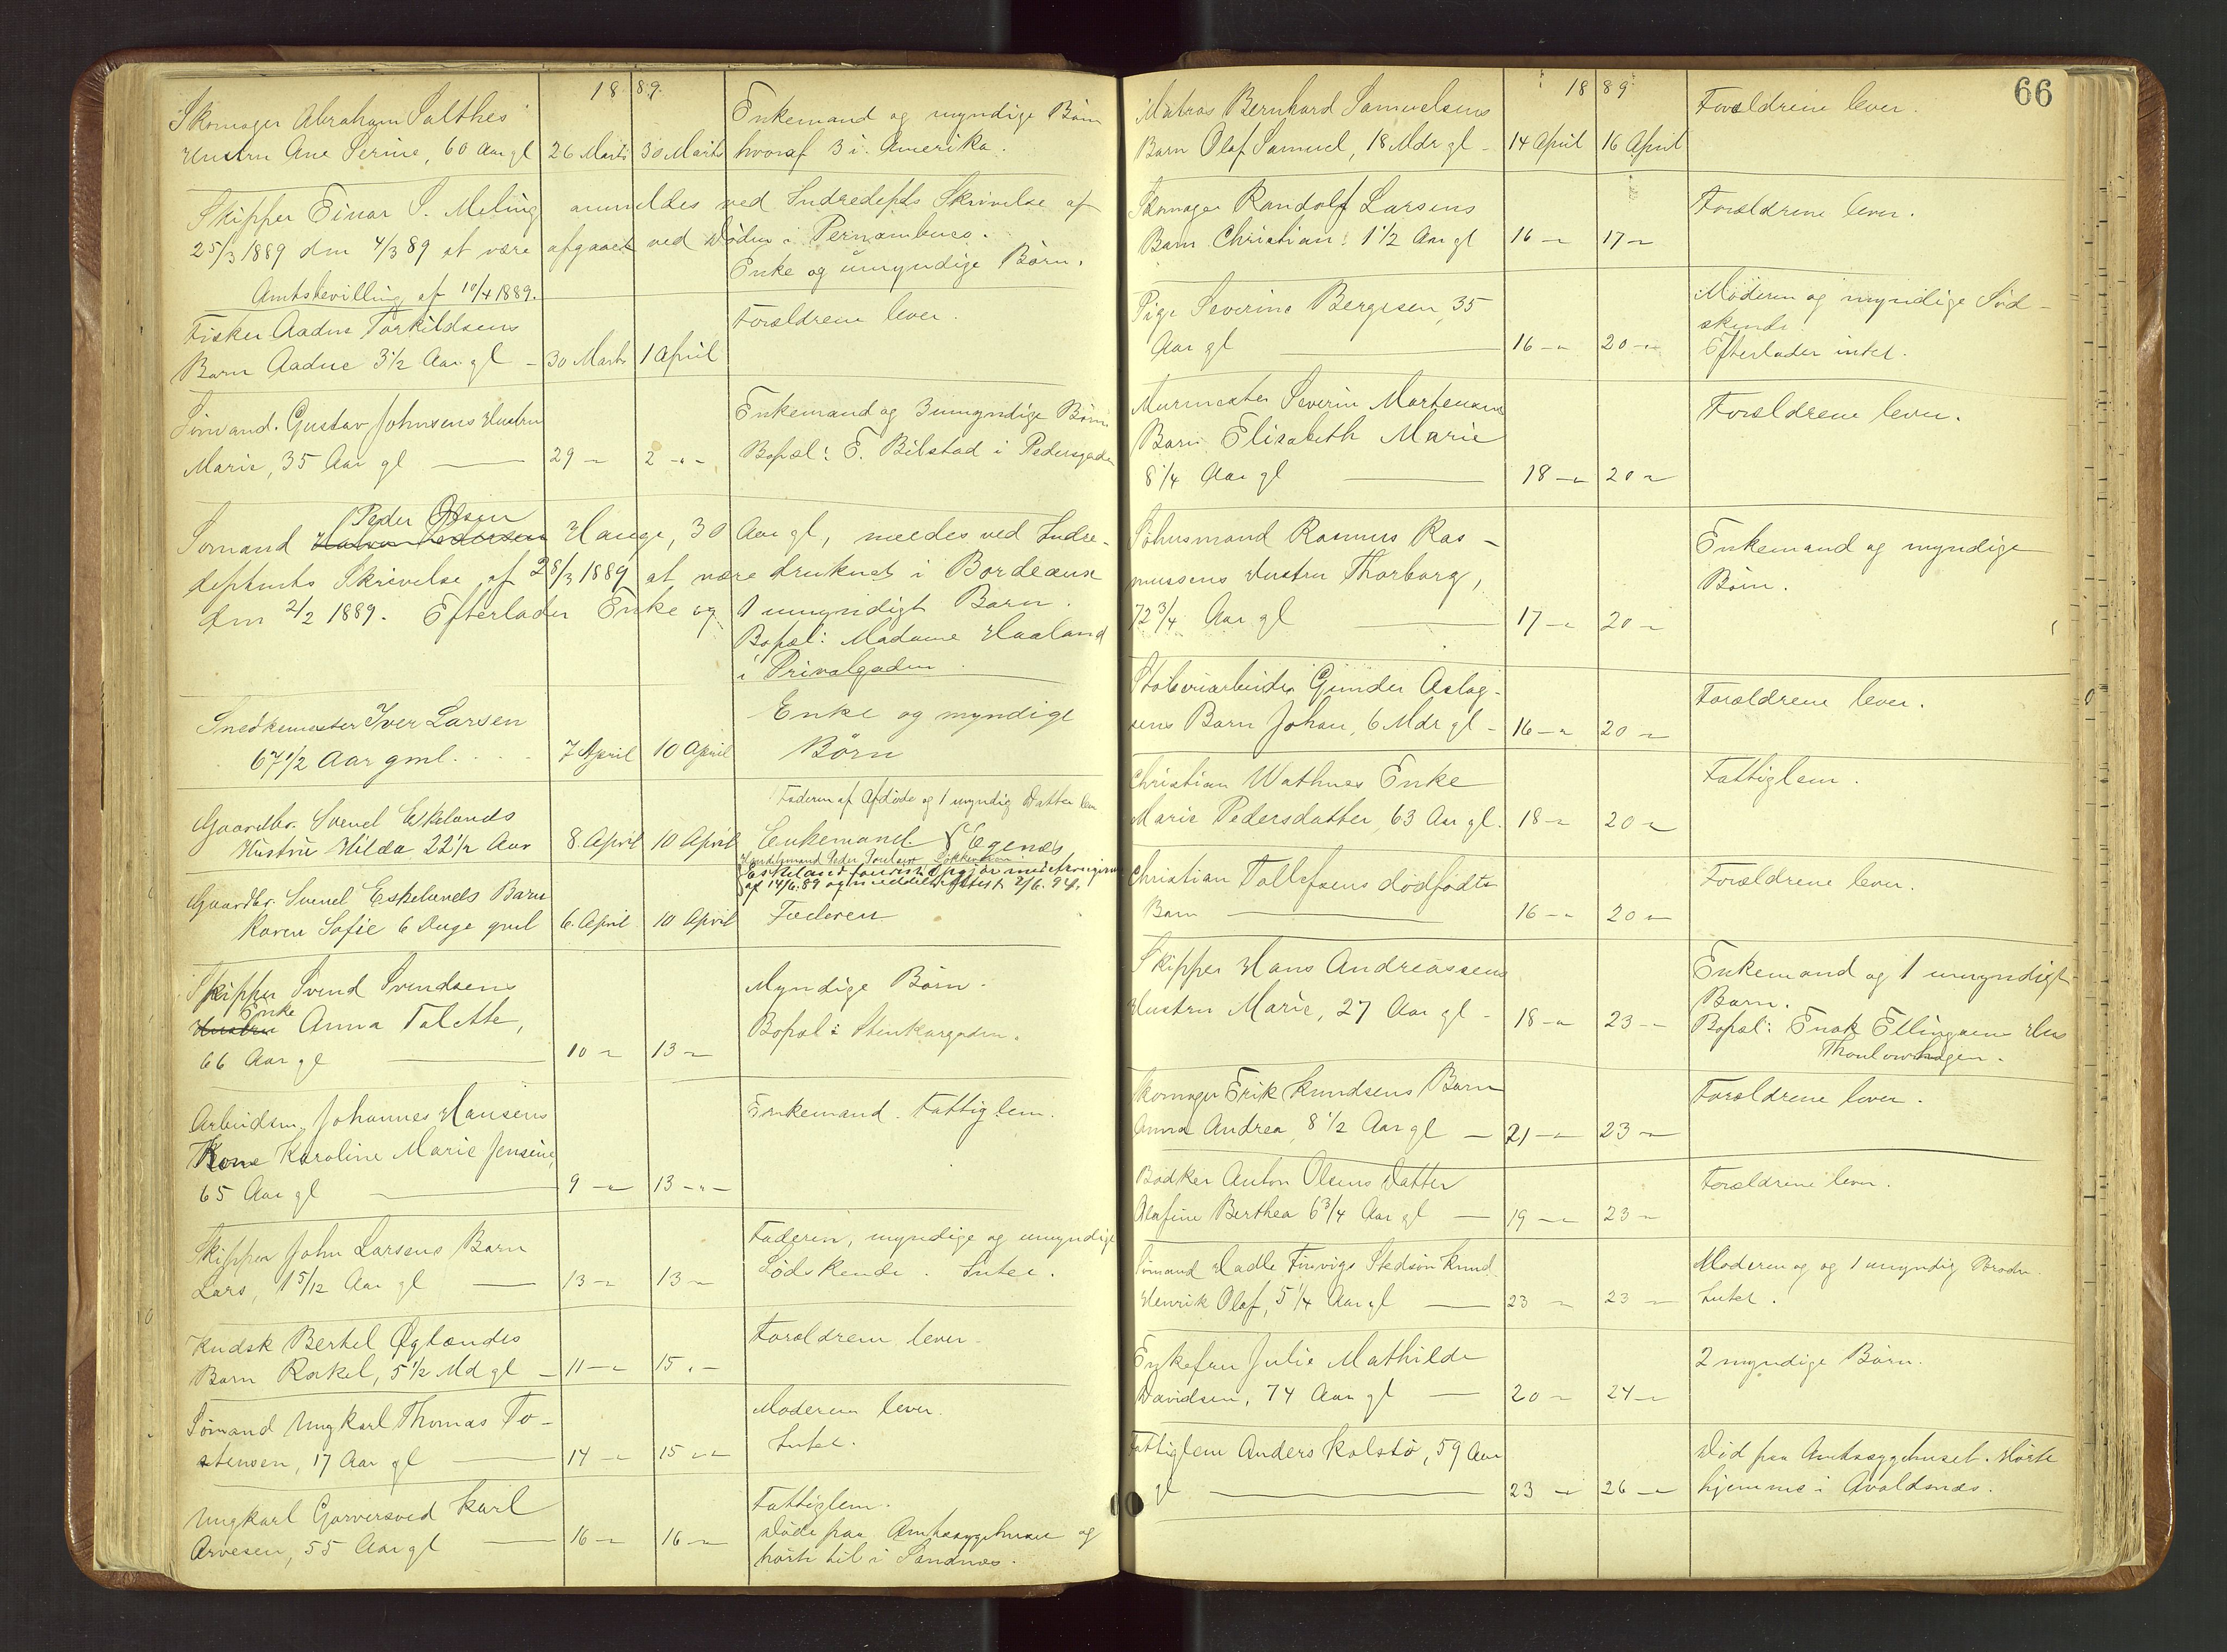 18 89.
Skomager Abraham Salthes
Hustru Ane Serine, 60 Aar gl 26 Marts 30 Marts
Enkemand og myndige Børn
hvoraf 3 i Amerika.
Skipper Einar S. Meling anmeldes ved Indredepts Skrivelse af
25/3 1889 den 4/3 89 at være afgaaet ved Døden i Pernambuco.
Enke og umyndige Børn.
Amtsbevilling af 10/4 1889.
Fisker Aadne Torkildsens
Barn Aadne 3 1/2 Aar gl - 30 Marts 1 April
Forældrene lever.
Sømand Gustav Johnsens Hustru
Marie, 35 Aar gl — 29 — 2 -"-
Enkemand og 3 umyndige Børn
Bopæl: E. Bilstad i Pedersgaden
Peder Olsen
Sømand Hauge, 30 Aar gl, meldes ved Indre-
deptmts Skrivelse af 28/3 1889 at være druknet i Bordeaux
den 2/2 1889. Efterlader Enke og 1 umyndigt Barn.
Bopæl: Madame Haaland
i Privatgaden.
Snedkermester Iver Larsen
67 1/2 Aar gml. 7 April 10 April
Enke og myndige
Børn
Faderen af Afdøde og 1 myndig Datter lever
Gaardbr. Svend Eskelands
Hustru Hilda 22 1/2 Aar 8 April 10 April
Enkemand. Egenæs
Handelsmand Peder Poulsen
af 14/6.89 og meddelt Attest 2/6.94.
Gaardbr. Svend Eskelands Barn
Karen Sofie 6 Uge gml 6. April 10 April
Faderen
Skipper Svend Svendsens
Enke
Hustru Anna Talette,
66 Aar gl — 10 — 13 —
Myndige Børn.
Bopæl i Stenkargaden.
Arbeidsm. Johannes Hansens
Kone Karoline Marie Jensine,
65 Aar gl — 9 — 13 -"-
Enkemand. Fattiglem.
Skipper John Larsens Barn
Lars, 1 5/12 Aar gl — 13 — 13 —
Faderen, myndige og umyndige
Sødskende. Intet.
Kudsk Bertel Øglændes
Barn Rakel, 5 1/2 Md gl — 11 — 15 -"-
Forældrene lever.
Sømand Ungkarl Thomas To-
stensen, 17 Aar gl — 14 — 15 -"-
Moderen lever.
Intet.
Ungkarl Garversvend Karl
Arvesen, 55 Aar gl — 16 — 16 —
Fattiglem.
Døde paa Amtssygehuset og
hørte til i Sandnæs.
66
18 89
Matros Bernhard Samuelsens
Barn Olaf Samuel, 18 Mdr gl - 14 April 16 April
Forældrene lever.
Skomager Randolf Larsens
Barn Christian 1 1/2 Aar gl 16 — 17 —
Forældrene lever.
Pige Severine Bergesen, 35
Aar gl — 16 -"- 20 -"-
Moderen og myndige Sød-
skende.
Efterlader intet.
Murmester Severin Mortensens
Barn Elisabeth Marie
8 1/4 Aar gl — 18 — 20 —
Forældrene lever.
Søhusmand Rasmus Ras-
mussens Hustru Thorborg,
72 3/4 Aar gl — 17 — 20 —
Enkemand og myndige
Børn.
Støberiarbeider Gunder Aslag-
sens Barn Johan, 6 Mdr gl - 16 — 20 —
Forældrene lever.
Christian Wathnes Enke
Marie Pedersdatter, 63 Aar gl. 18 — 20 —
Fattiglem.
Christian Tollefsens dødfødte
Barn — 16 — 20 —
Forældrene lever.
Skipper Hans Andreassens
Hustru Marie, 27 Aar gl - 18 — 23 —
Enkemand og 1 umyndigt
Barn.
Bopæl: Enok Ellingsens Hus
Thoulowhagen.
Skomager Erik Knudsens Barn
Anna Andrea, 8 1/2 Aar gl — 21 — 23 —
Forældrene lever.
Bødker Anton Olsens Datter
Olefine Berthea 6 3/4 Aar gl — 19 — 23 —
Forældrene lever.
Sømand Hadle Finvigs Stedsøn Knud
Henrik Olaf, 5 1/4 Aar gl — 23 — 23 —
Moderen og og 1 umyndig Broder.
Intet.
Enkefru Julie Mathilde
Davidsen, 74 Aar gl — 20 — 24 —
2 myndige Børn.
Fattiglem Anders Kolstø, 59 Aar
gl — 23 — 26 —
Død paa Amtssygehuset. Hørte
hjemme i Avaldsnæs.